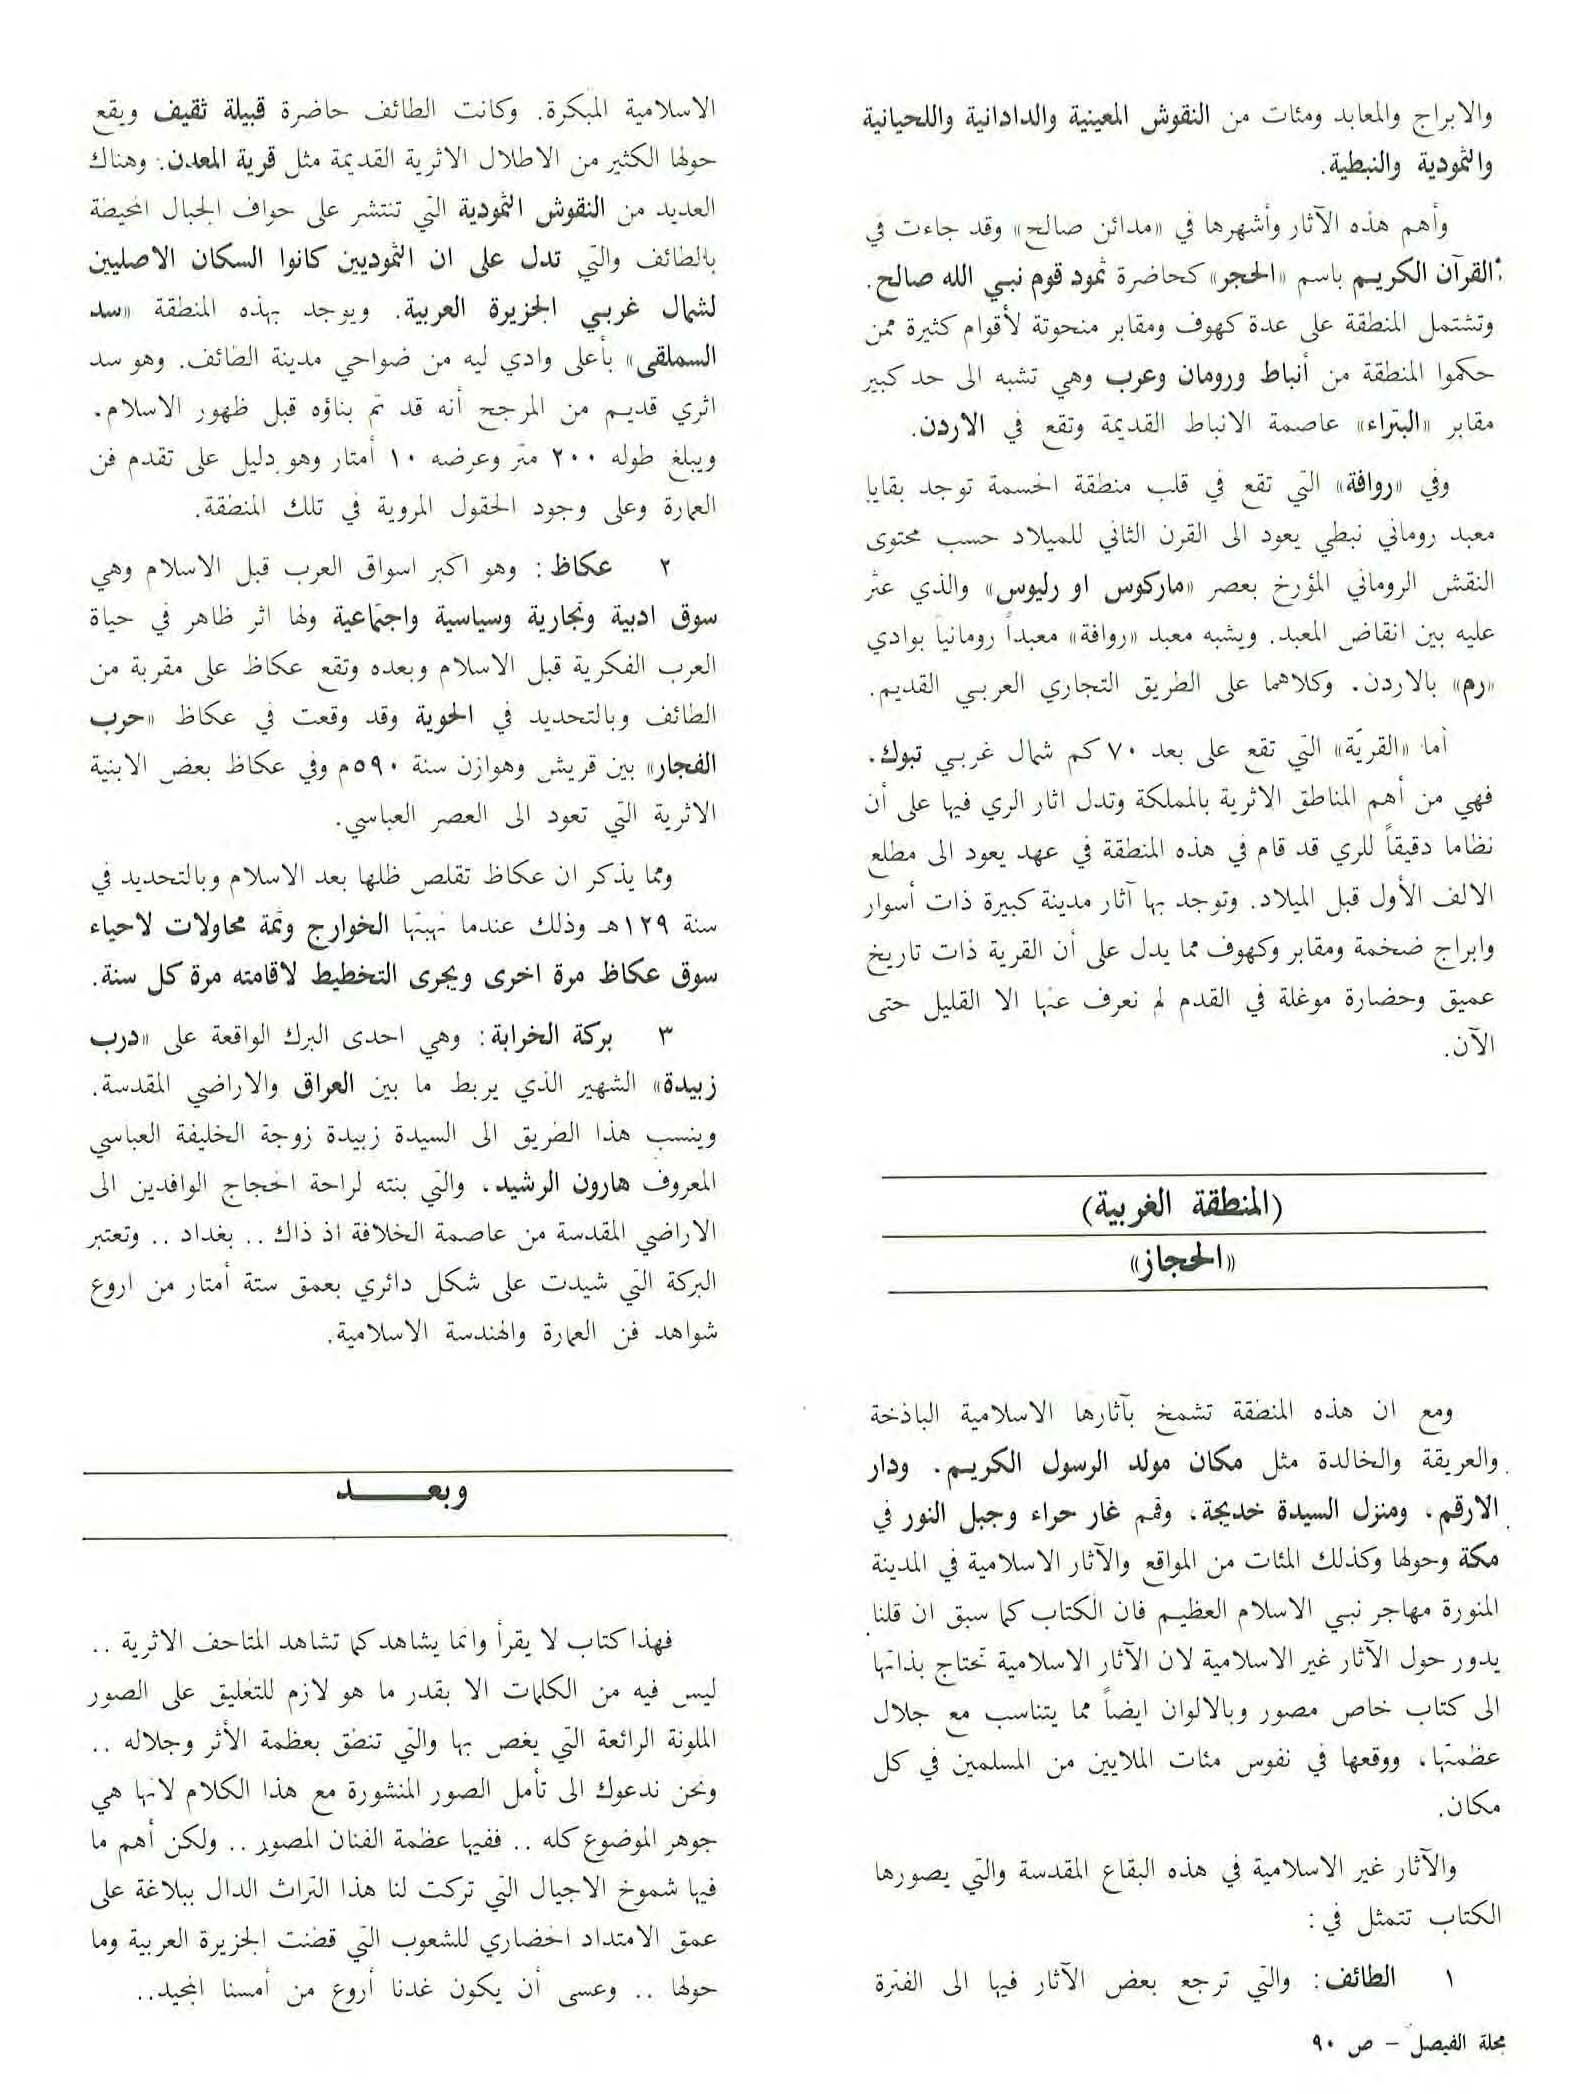 والابراج والمعابد ومئات من النقوش المعينية والدادانية واللحيانية
والثمودية والنبطية.
وأهم هذه الآثار وأشهرها في «مدائن صالح» وقد جاءت في
القرآن الكريم باسم «الحجر» كحاضرة ثمود قوم نبي الله صالح.
وتشتمل المنطقة على عدة كهوف ومقابر منحوتة لأقوام كثيرة ممن
حكموا المنطقة من أنباط ورومان وعرب وهي تشبه الى حد كبير
مقابر «البتراء» عاصمة الانباط القديمة وتقع في الاردن.
وفي «روافة» التي تقع في قلب منطقة الحسمة توجد بقايا
معبد روماني نبطي يعود الى القرن الثاني للميلاد حسب محتوى
النقش الروماني المؤرخ بعصر «ماركوس او رليوس» والذي عثر
عليه بين انقاض المعبد. ويشبه معبد «روافة» معبداً رومانيا بوادي
«رم» بالاردن. وكلاهما على الطريق التجاري العربي القديم.
أما «القريّة» التي تقع على بعد ٧٠ كم شمال غربي تبوك،
فهي من أهم المناطق الاثرية بالمملكة وتدل اثار الري فيها على أن
نظاما دقيقاً للري قد قام في هذه المنطقة في عهد يعود الى مطلع
الالف الأول قبل الميلاد. وتوجد بها آثار مدينة كبيرة ذات أسوار
وابراج ضخمة ومقابر وكهوف مما يدل على أن القرية ذات تاريخ
عميق وحضارة موغلة في القدم لم نعرف عنها الا القليل حتى
الآن.
(المنطقة الغربية)
«الحجاز»
ومع ان هذه المنطقة تشمخ بآثارها الاسلامية الباذخة
والعريقة والخالدة مثل مكان مولد الرسول الكريم، ودار
الارقم، ومنزل السيدة خديجة، وقمم غار حراء وجبل النور في
مكة وحولها وكذلك المئات من المواقع والآثار الاسلامية في المدينة
المنورة مهاجر نبي الاسلام العظيم فان الكتاب كما سبق ان قلنا
يدور حول الآثار غير الاسلامية لان الآثار الاسلامية تحتاج بذاتها
الى كتاب خاص مصور وبالالوان ايضاً مما يتناسب مع جلال
عظمتها، ووقعها في نفوس مئات الملايين من المسلمين في كل
مكان.
والآثار غير الاسلامية في هذه البقاع المقدسة والتي يصورها
الكتاب تتمثل في:
١ الطائف: والتي ترجع بعض الآثار فيها الى الفترة
الاسلامية المبكرة. وكانت الطائف حاضرة قبيلة ثقيف ويقع
حولها الكثير من الاطلال الاثرية القديمة مثل قرية المعدن. وهناك
العديد من النقوش الثمودية التي تنتشر على حواف الجبال المحيطة
بالطائف والتي تدل على ان الثموديين كانوا السكان الاصليين
لشمال غربي الجزيرة العربية. ويوجد بهذه المنطقة «سد
السملقى» بأعلى وادي ليه من ضواحي مدينة الطائف. وهو سد
اثري قديم من المرجح أنه قد تم بناؤه قبل ظهور الاسلام.
ويبلغ طوله ٢٠٠ متر وعرضه ١٠ أمتار وهو دليل على تقدم فن
العمارة وعلى وجود الحقول المروية في تلك المنطقة.
٢ عكاظ: وهو اكبر اسواق العرب قبل الاسلام وهي
سوق ادبية وتجارية وسياسية واجتماعية ولها اثر ظاهر في حياة
العرب الفكرية قبل الاسلام وبعده وتقع عكاظ على مقربة من
الطائف وبالتحديد في الحوية وقد وقعت في عكاظ «حرب
الفجار» بين قريش وهوازن سنة ٥٩٠م وفي عكاظ بعض الابنية
الاثرية التي تعود الى العصر العباسي.
ومما يذكر ان عكاظ تقلص ظلها بعد الاسلام وبالتحديد في
سنة ١٢٩هـ وذلك عندما نهبتها الخوارج وثمة محاولات لاحياء
سوق عكاظ مرة اخرى ويجرى التخطيط لاقامته مرة كل سنة.
٣ بركة الخرابة: وهي احدى البرك الواقعة على «درب
زبيدة» الشهير الذي يربط ما بين العراق والاراضي المقدسة.
وينسب هذا الطريق الى السيدة زبيدة زوجة الخليفة العباسي
المعروف هارون الرشيد، والتي بنته لراحة الحجاج الوافدين الى
الاراضي المقدسة من عاصمة الخلافة اذ ذاك .. بغداد .. وتعتبر
البركة التي شيدت على شكل دائري بعمق ستة أمتار من اروع
شواهد فن العمارة والهندسة الاسلامية.
وبعـــــد
فهذا كتاب لا يقرأ وانما يشاهد كما تشاهد المتاحف الاثرية ..
ليس فيه من الكلمات الا بقدر ما هو لازم للتعليق على الصور
الملونة الرائعة التي يغص بها والتي تنطق بعظمة الأثر وجلاله ..
ونحن ندعوك الى تأمل الصور المنشورة مع هذا الكلام لانها هي
جوهر الموضوع كله .. ففيها عظمة الفنان المصور .. ولكن أهم ما
فيها شموخ الاجيال التي تركت لنا هذا التراث الدال ببلاغة على
عمق الامتداد الحضاري للشعوب التي قطنت الجزيرة العربية وما
حولها .. وعسى أن يكون غدنا أروع من أمسنا المجيد..
مجلة الفيصل – ص ٩٠